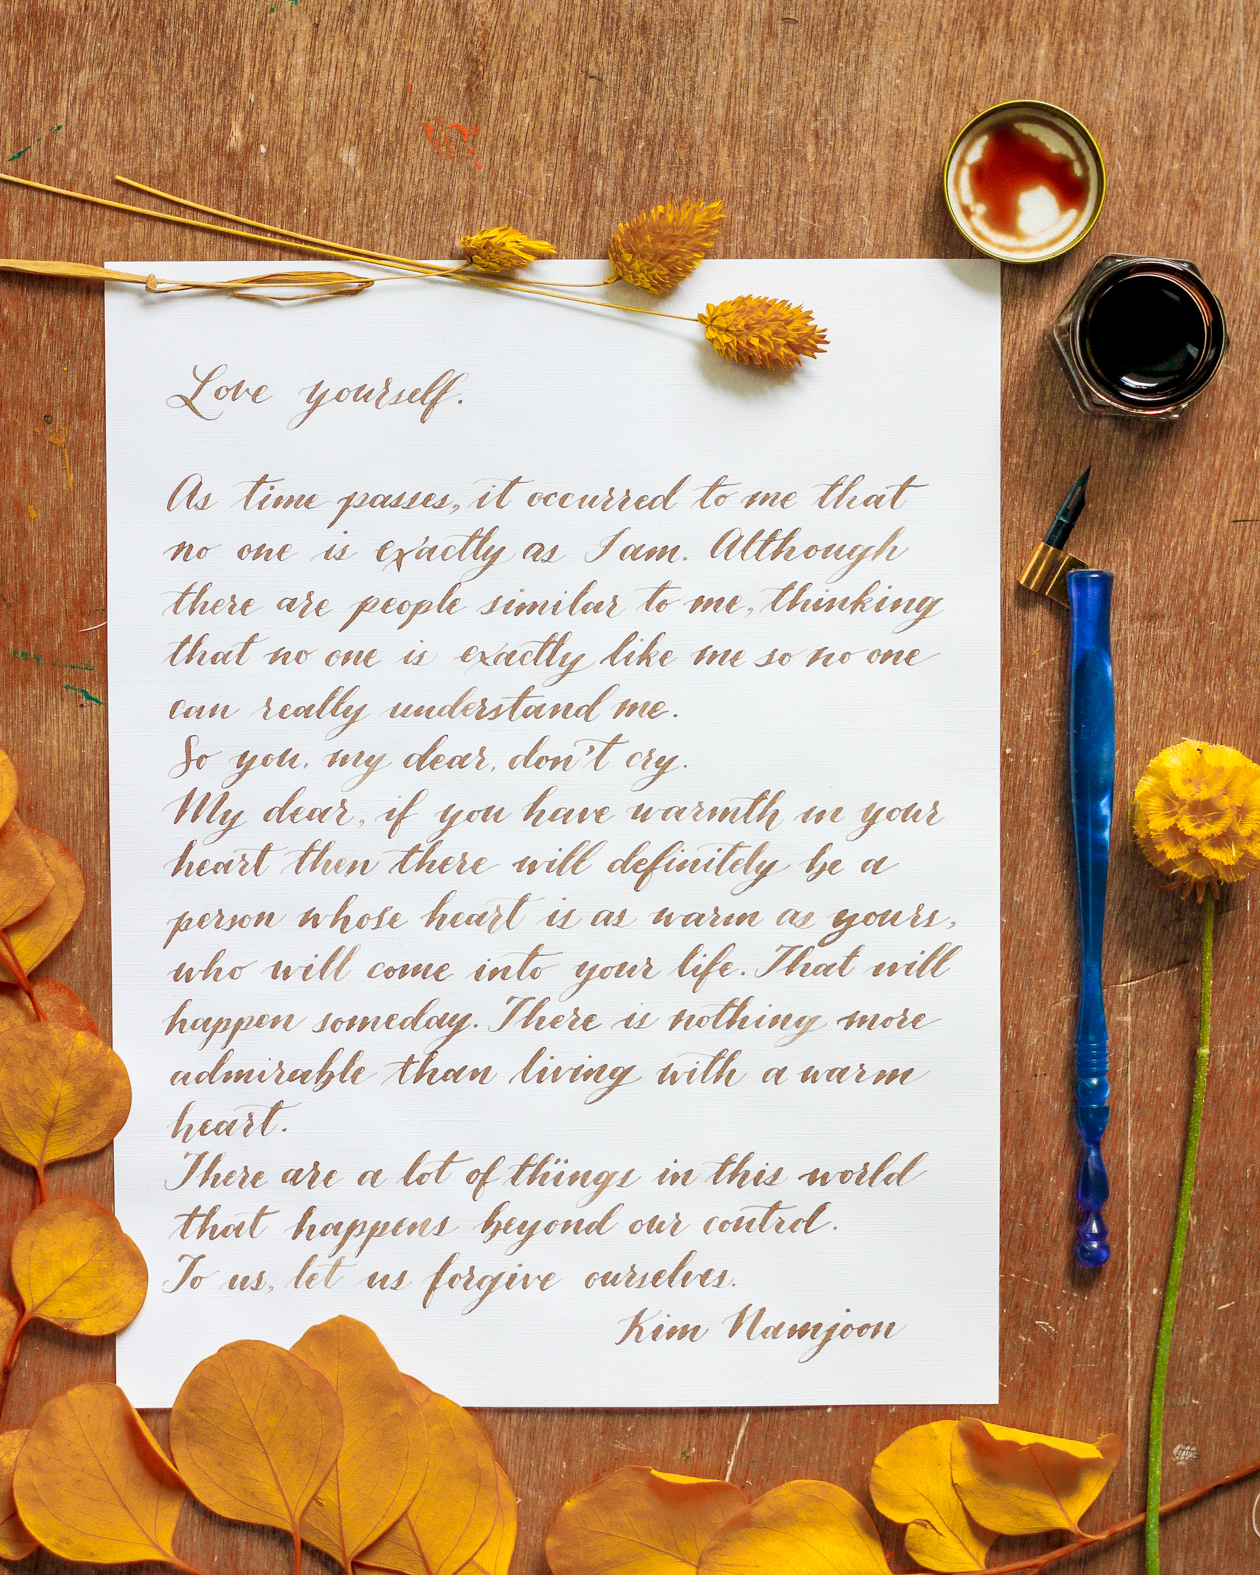 Love yourself.
As time passes, it occurred to me that
no one is exactly as I am. Although
there are people similar to me, thinking
that no one is exactly like me so no one
can really understand me.
So you, my dear, don't cry.
My dear, if you have warmth in your
heart then there will definitely be a
person whose heart is as warm as yours,
who will come into your life. That will
happen someday. There is nothing more
admirable than living with a warm
heart.
There are a lot of things in this world
that happens beyond our control.
To us, let us forgive ourselves.
Kim Namjoon